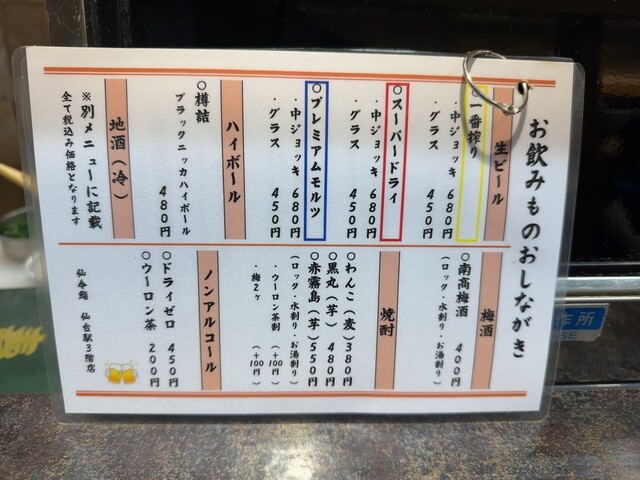 お飲みものおしながき
生ビール
○一番搾り
・中ジョッキ 680円
・グラス 450円
○スーパードライ
・中ジョッキ 680円
・グラス 450円
○プレミアムモルツ
・中ジョッキ 680円
・グラス 450円
ハイボール
○樽詰
ブラックニッカハイボール
480円
地酒(冷)
※別メニューに記載
全て税込み価格となります
梅酒
○南高梅酒 400円
(ロック・水割り・お湯割り)
焼酎
○わんこ(麦)380円
○黒丸(芋)480円
○赤霧島(芋)550円
(ロック・水割り・お湯割り)
・ウーロン茶割 (+100円)
・梅2ヶ (+100円)
ノンアルコール
○ドライゼロ 450円
○ウーロン茶 200円
仙令鮨 仙台駅3階店
作所
SE